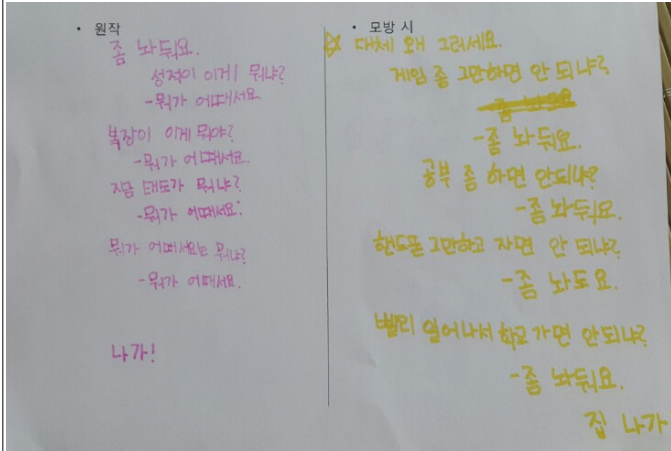 • 원작
좀 놔둬요.
성적이 이게 뭐냐?
-뭐가 어때서요
복장이 이게 뭐야?
-뭐가 어때서요.
지금 태도가 뭐냐?
-뭐가 어때서요.
뭐가 어때서요는 뭐냐?
-뭐가 어때서요.
나가!
• 모방 시
대체 왜 그러세요.
게임 좀 그만하면 안 되냐?
-좀 놔둬요.
공부 좀 하면 안되냐?
-좀 놔둬요.
핸드폰 그만하고 자면 안 되냐?
-좀 놔도요.
빨리 일어나서 학교 가면 안되냐?
-좀 놔둬요.
집 나가